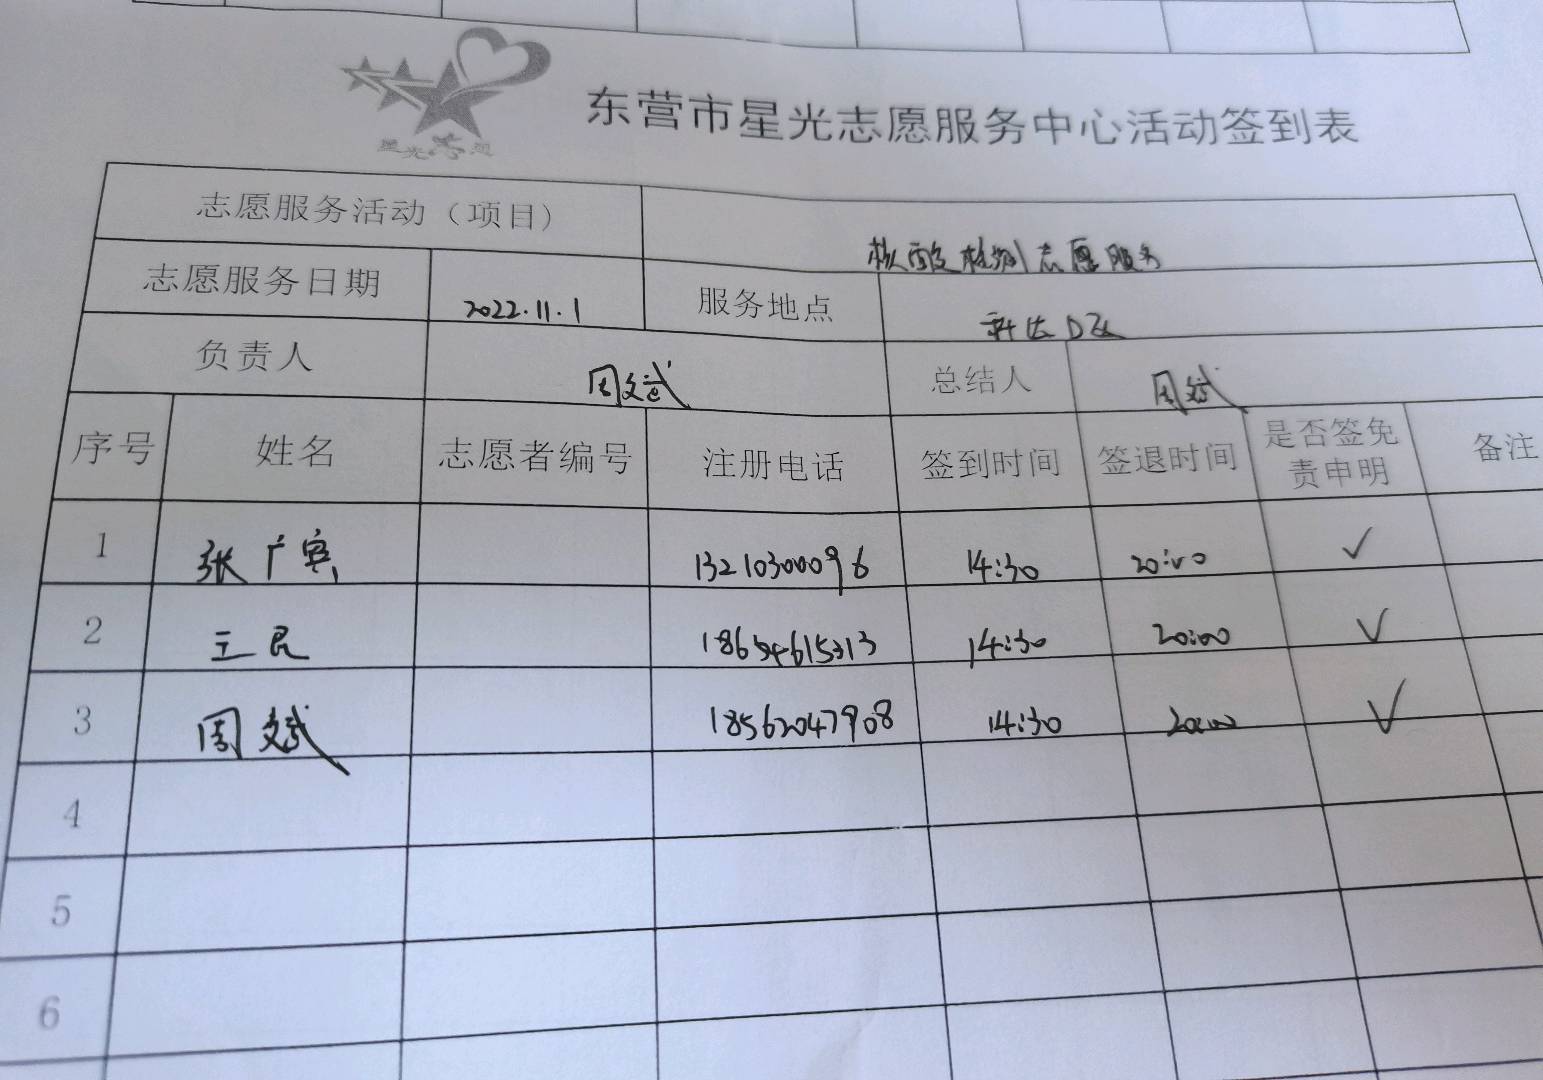 东营市星光志愿服务中心活动签到表
志愿服务活动（项目） 核酸检测志愿服务
志愿服务日期 2022.11.1 服务地点 科达D区
负责人 周文斌 总结人 周斌
序号 姓名 志愿者编号 注册电话 签到时间 签退时间 是否签免责申明 备注
1 张广宾 13210300096 14:30 20:00 ✓
2 王民 14:30 20:00 ✓
3 周斌 18562047908 14:30 20:00 ✓
4
5
6